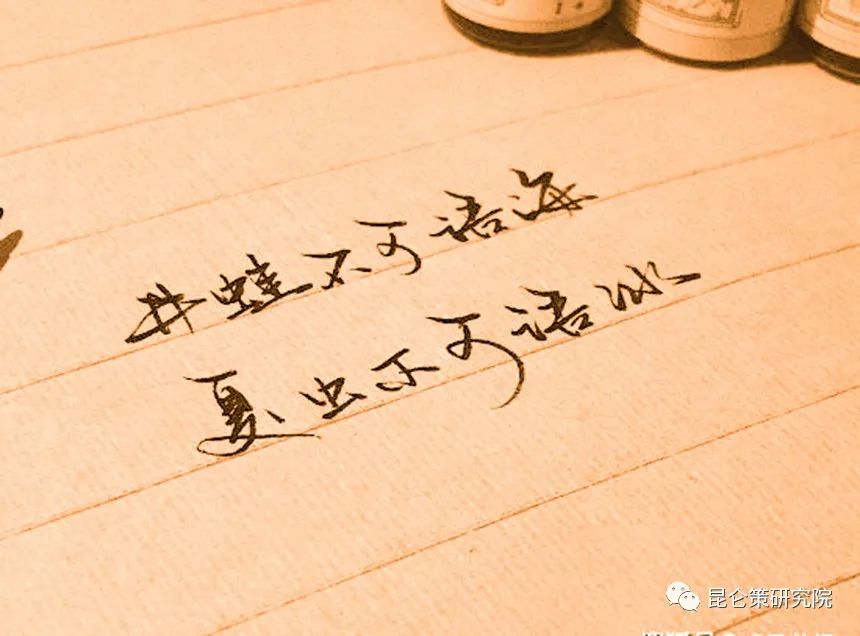 井蛙不可语海
夏虫不可语冰
昆仑策研究院